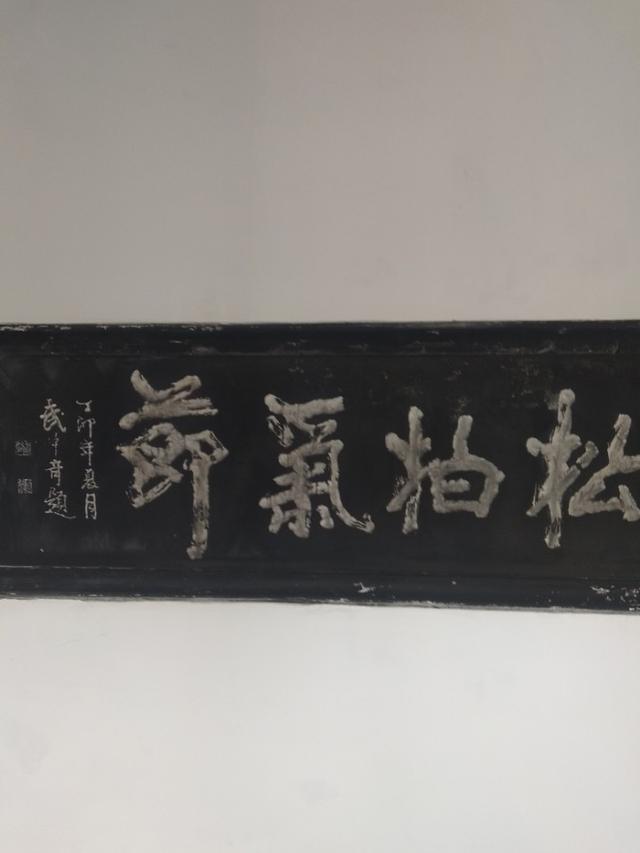 松柏氣節
丁卯年夏月
武中奇題